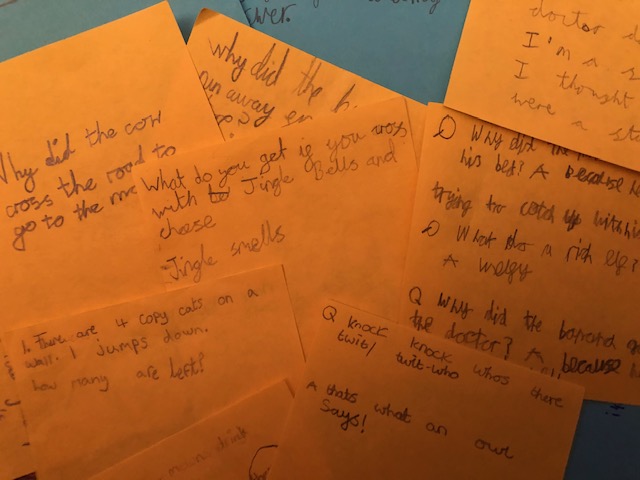 wer.
doctor d
I'm a s
I thought
were a sta
why did the h
away
Why did the cow
cross the road to
go to the mo
What do you get if you cross
with to Jingle Bells and
cheese
Jingle smells
Q Why did the
his bed? A because
trying to catch up with his
Q What do a rich elf?
A welfy
Q Why did the banana go
the doctor? A because
1. There are 4 copy cats on a
wall. 1 jumps down.
how many are left?
Q knock knock whos there
twit/ twit-who
A thats what an owl
Says!
drink